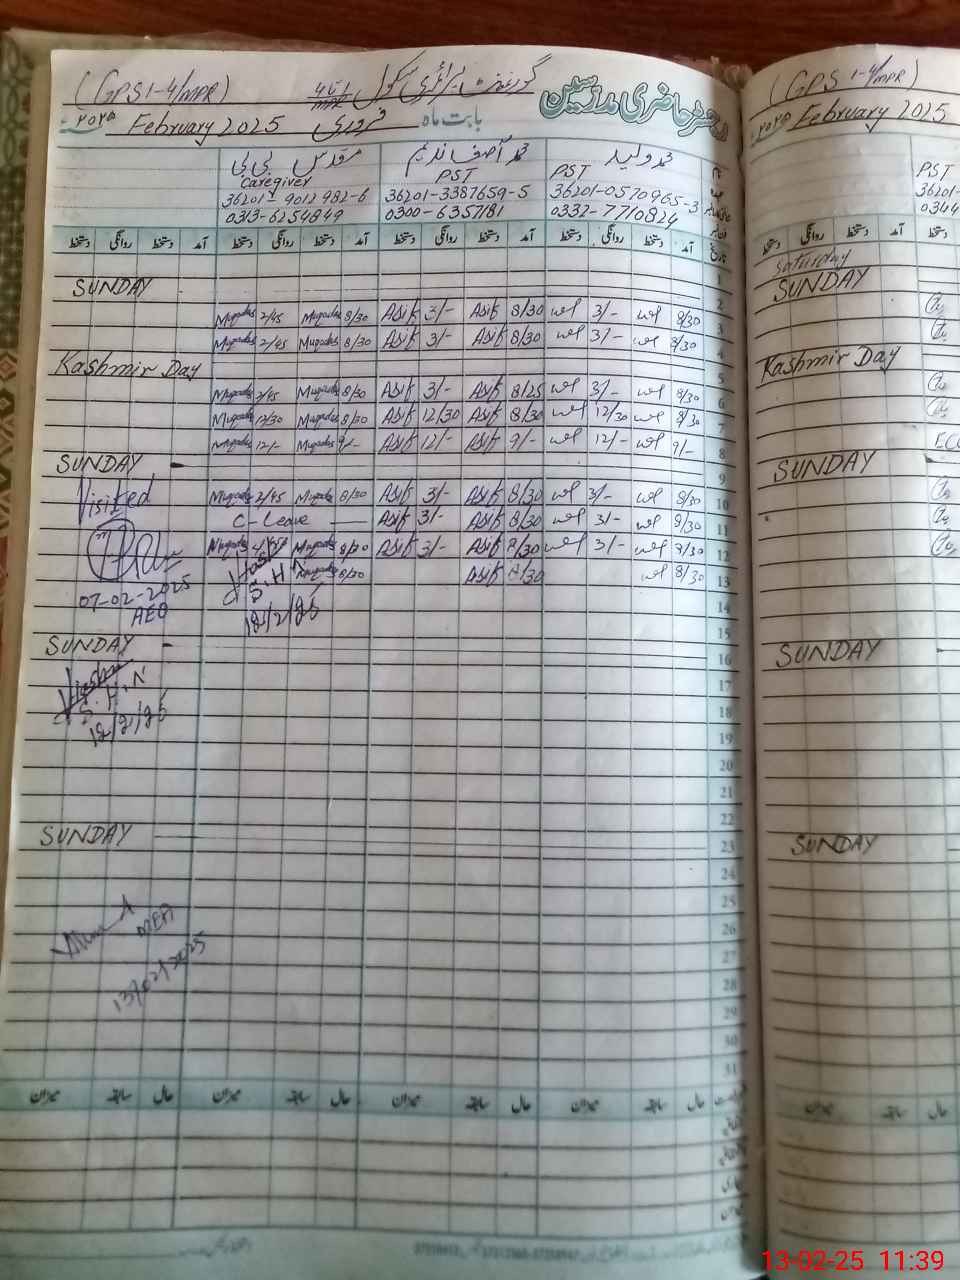 (GPS 1-4/MPR) گورنمنٹ پرائمری سکول رجسٹر حاضری مدرسین
۲۰۲۵ February 2025 فروری بابت ماہ
مقدس بی بی محمد آصف ندیم محمد ولید
Caregiver PST PST
36201-9012982-6 36201-3387659-5 36201-0570965-3
0313-6254849 0300-6357181 0332-7710824
دستخط روانگی دستخط آمد دستخط روانگی دستخط آمد دستخط روانگی دستخط آمد دستخط روانگی دستخط آمد تاریخ
1
SUNDAY 2
Muqadas 2/45 Muqadas 8/30 Asif 3/- Asif 8/30 3/- 8/30 3
Muqadas 2/45 Muqadas 8/30 Asif 3/- Asif 8/30 3/- 8/30 4
Kashmir Day 5
Muqadas 2/45 Muqadas 8/30 Asif 3/- Asif 8/25 3/- 8/30 6
Muqadas 12/30 Muqadas 8/30 Asif 12/30 Asif 8/30 12/30 8/30 7
Muqadas 12/- Muqadas 9/- Asif 12/- Asif 9/- 12/- 9/- 8
SUNDAY 9
Visited Muqadas 2/45 Muqadas 8/30 Asif 3/- Asif 8/30 3/- 8/30 10
C-Leave Asif 3/- Asif 8/30 3/- 8/30 11
Muqadas Muqadas 8/30 Asif 3/- Asif 8/30 3/- 8/30 12
Muqadas 8/30 Asif 8/30 8/30 13
07-02-2025
AEO
S.H.N
12/2/25
14
15
SUNDAY 16
S.H.N
12/2/25
17
18
19
20
21
22
SUNDAY 23
24
25
26
MEA
13/02/2025
27
28
29
30
31
میزان سابقہ حال میزان سابقہ حال میزان سابقہ حال میزان سابقہ حال
(GPS 1-4/MPR)
۲۰۲۵ February 2025
PST
36201-
0344
دستخط روانگی دستخط آمد دستخط
Saturday
SUNDAY
Kashmir Day
SUNDAY
SUNDAY
SUNDAY
میزان سابقہ حال
13-02-25 11:39